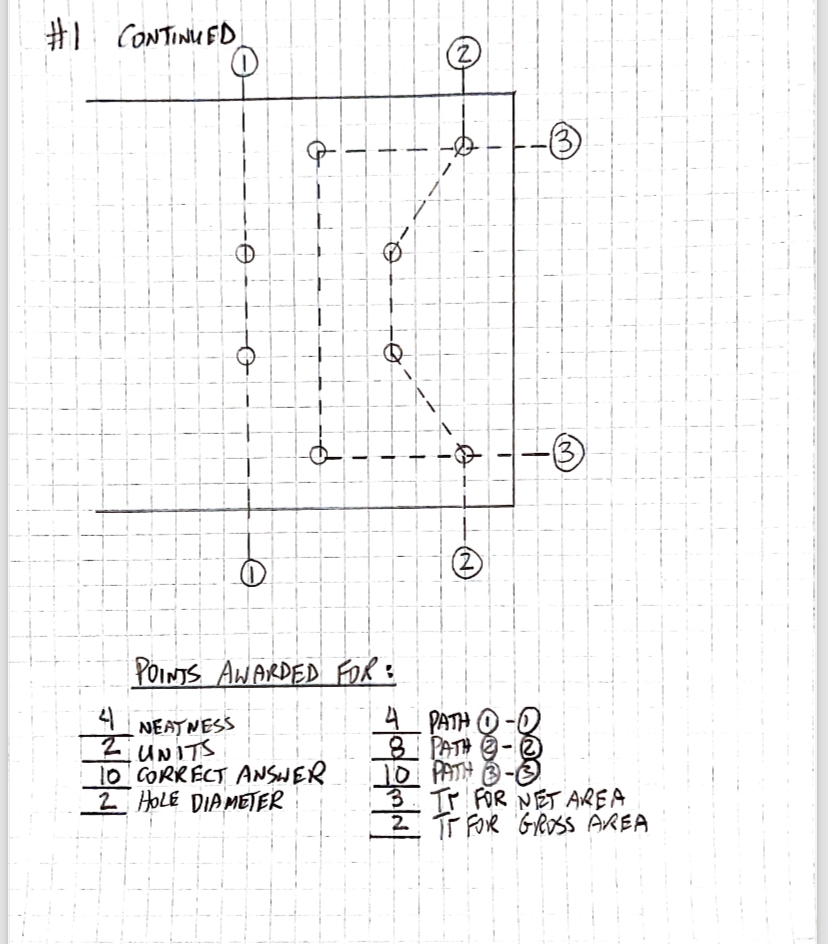 #1 CONTINUED
① ②
③
③
① ②
POINTS AWARDED FOR:
4 NEATNESS
2 UNITS
10 CORRECT ANSWER
2 HOLE DIAMETER
4 PATH ①-①
8 PATH ②-②
10 PATH ③-③
3 Tr FOR NET AREA
2 Tr FOR GROSS AREA